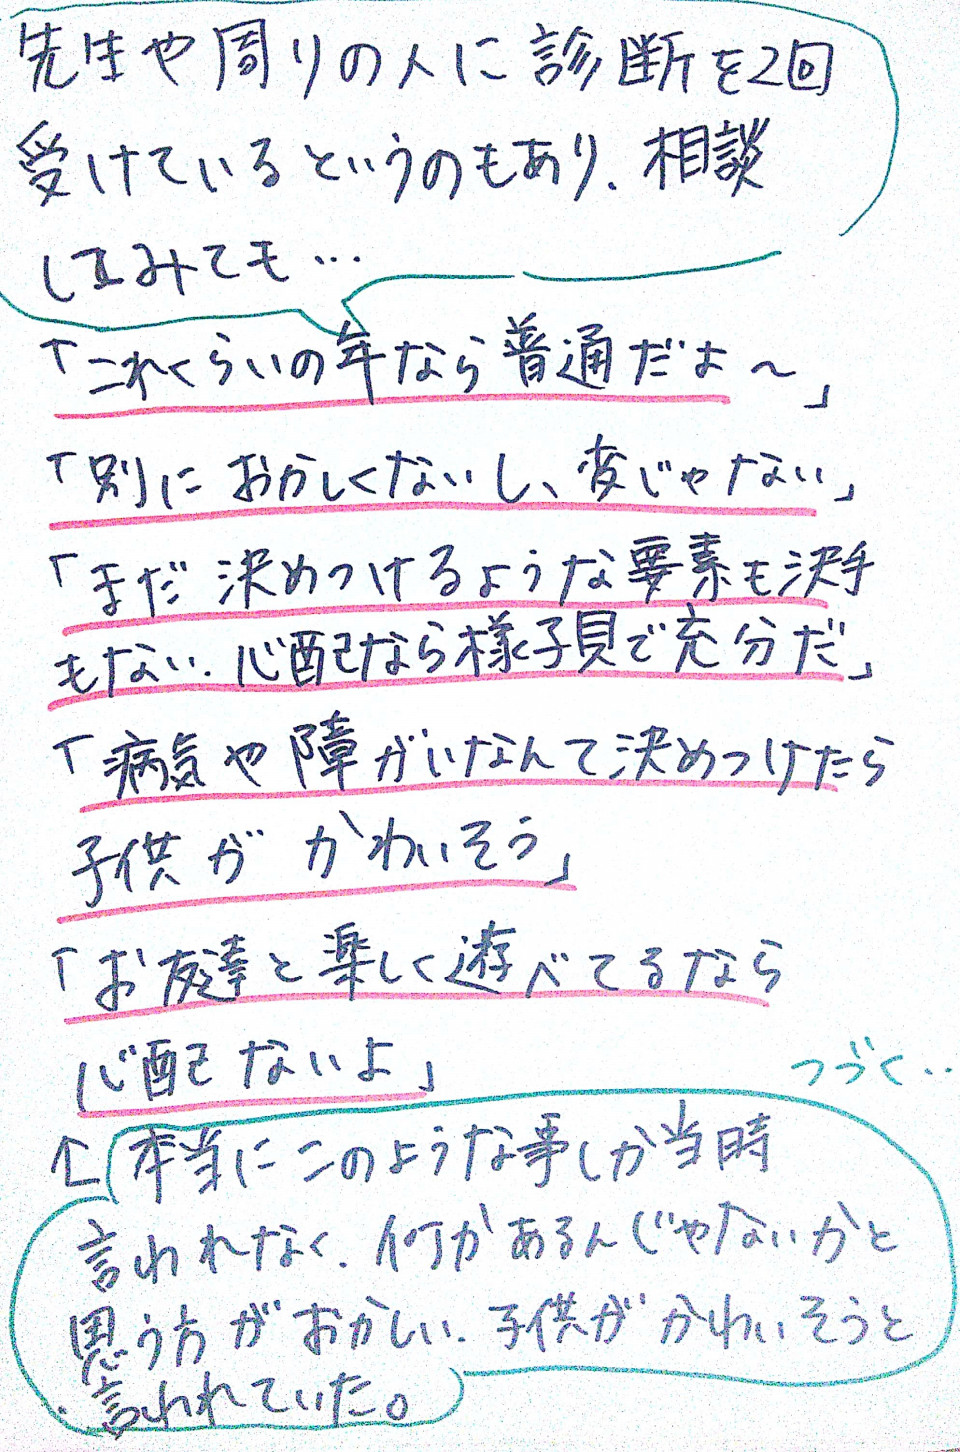 先生や周りの人に診断を2回
受けているというのもあり、相談
してみても…
「これくらいの年なら普通だよ〜」
「別におかしくないし、変じゃない」
「まだ決めつけるような要素も決手
もない。心配なら様子見で充分だ」
「病気や障がいなんて決めつけたら
子供がかわいそう」
「お友達と楽しく遊べてるなら
心配ないよ」
つづく‥
↑本当にこのような事しか当時
言われなく、何かあるんじゃないかと
思う方がおかしい。子供がかわいそうと
言われていた。